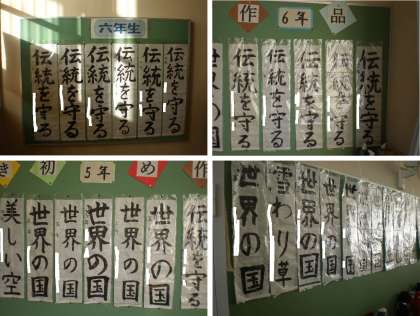 六年生
伝統を守る
伝統を守る
伝統を守る
伝統を守る
伝統を守る
伝統を守る
作 6年 品
世界の国
伝統を守る
伝統を守る
伝統を守る
伝統を守る
伝統を守る
き初 5年 め作
美しい空
世界の国
世界の国
世界の国
世界の国
世界の国
伝統を守る
世界の国
雪わり草
世界の国
世界の国